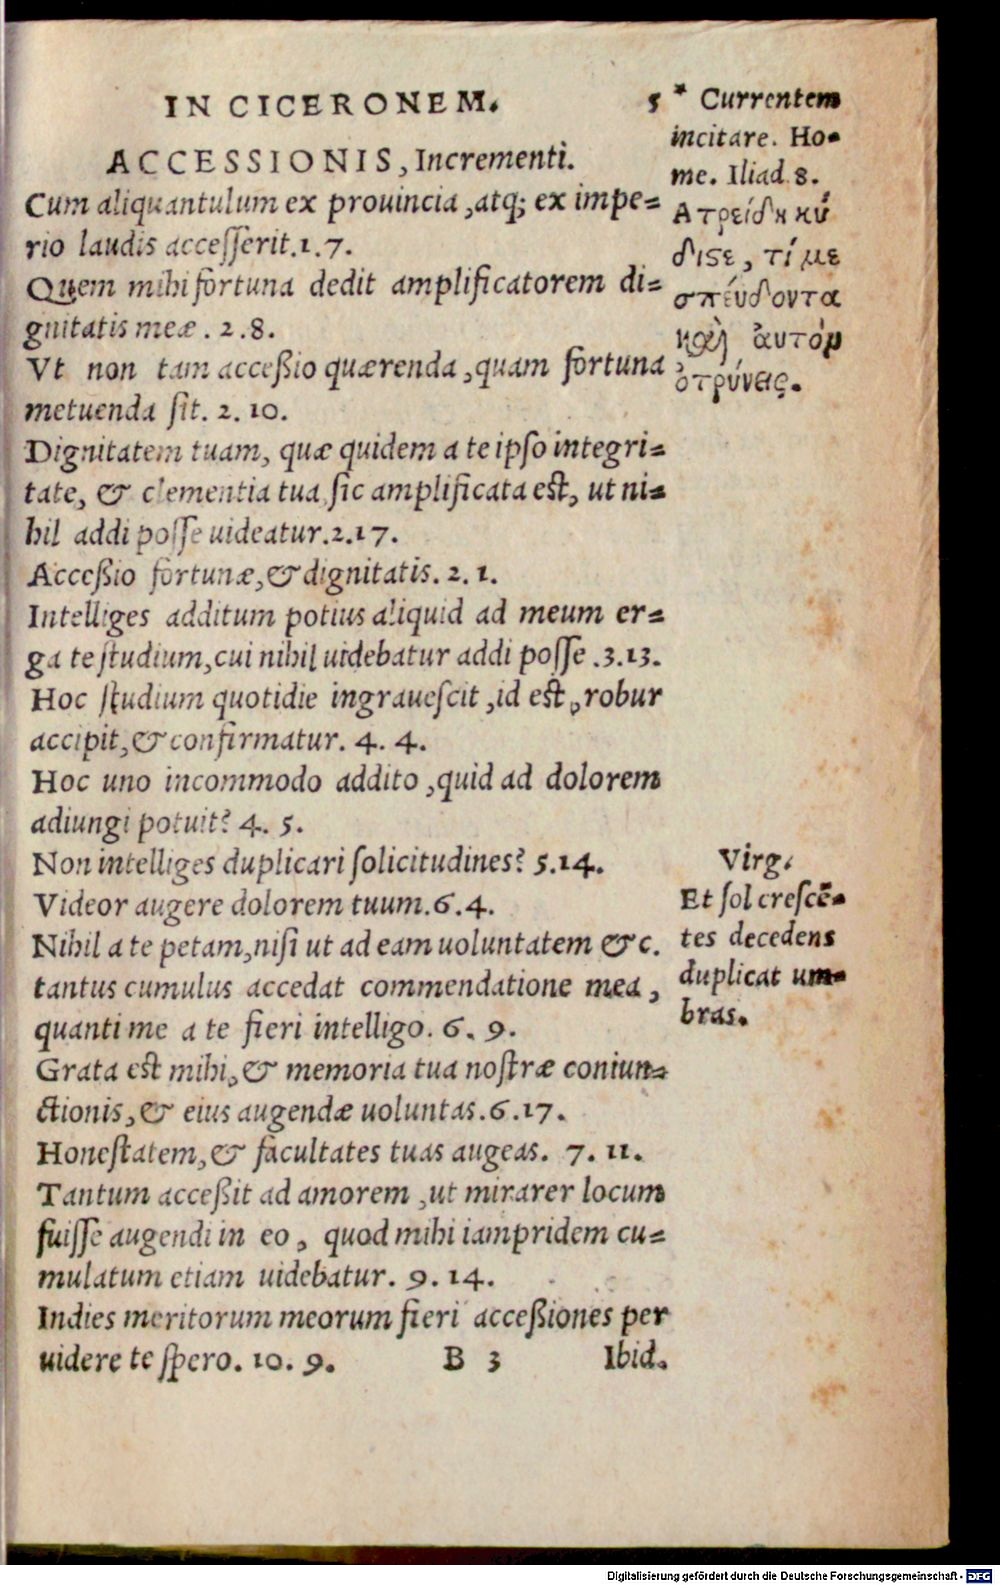 IN CICERONEM. 5
ACCESSIONIS, Incrementi.
Cum aliquantulum ex prouincia, atq; ex impe=
rio laudis accesserit.1.7.
Quem mihi fortuna dedit amplificatorem di=
gnitatis meæ. 2.8.
Vt non tam acceßio quærenda, quam fortuna
metuenda sit. 2.10.
Dignitatem tuam, quæ quidem a te ipso integri=
tate, & clementia tua sic amplificata est, ut ni=
hil addi posse uideatur.2.17.
Acceßio fortunæ, & dignitatis. 2.1.
Intelliges additum potius aliquid ad meum er=
ga te studium, cui nihil uidebatur addi posse.3.13.
Hoc studium quotidie ingrauescit, id est, robur
accipit, & confirmatur. 4. 4.
Hoc uno incommodo addito, quid ad dolorem
adiungi potuit? 4. 5.
Non intelliges duplicari solicitudines? 5.14.
Videor augere dolorem tuum.6.4.
Nihil a te petam, nisi ut ad eam uoluntatem &c.
tantus cumulus accedat commendatione mea,
quanti me a te fieri intelligo. 6. 9.
Grata est mihi, & memoria tua nostræ coniun=
ctionis, & eius augendæ uoluntas.6.17.
Honestatem, & facultates tuas augeas. 7. 11.
Tantum acceßit ad amorem, ut mirarer locum
fuisse augendi in eo, quod mihi iampridem cu=
mulatum etiam uidebatur. 9. 14.
Indies meritorum meorum fieri acceßiones per
uidere te spero. 10. 9. B 3 Ibid.
* Currentem
incitare. Ho=
me. Iliad 8.
Ατρείδη κύ
διϛε, τί με
σπεύδοντα
καὶ αὐτὸν
ὀτρύνεις.
Virg.
Et sol crescē=
tes decedens
duplicat um=
bras.
Digitalisierung gefördert durch die Deutsche Forschungsgemeinschaft - DFG